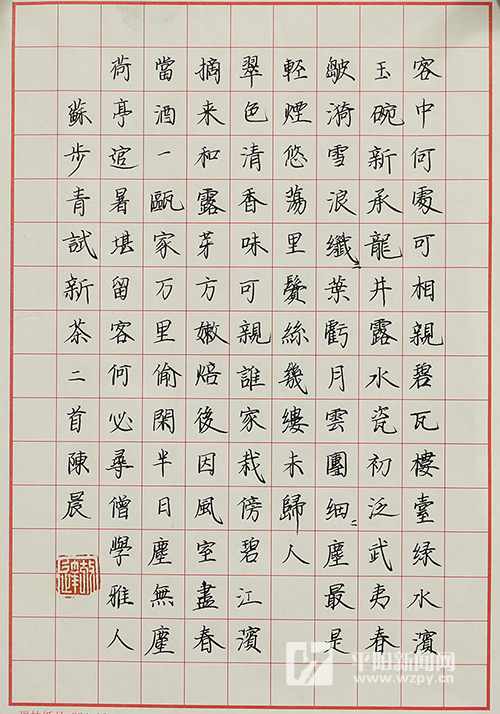 客中何處可相親碧瓦樓臺綠水濱
玉碗新承龍井露水瓷初泛武夷春
皺漪雪浪纖〻葉虧月雲團細〻塵最是
輕煙悠蕩里鬢絲幾縷未歸人
翠色清香味可親誰家栽傍碧江濱
摘来和露芽方嫩焙後因風室盡春
當酒一甌家万里偷閑半日塵無塵
荷亭逭暑堪留客何必尋僧學雅人
蘇步青試新茶二首陳晨
平阳新闻网
www.wzpy.cn